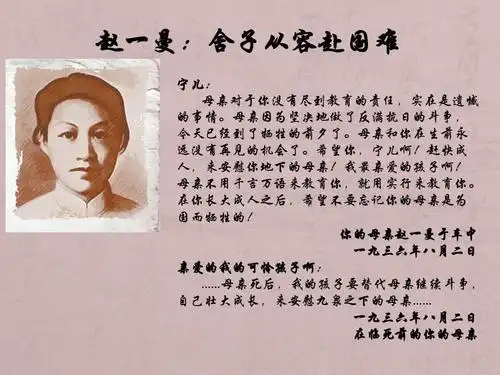 赵一曼：舍子从容赴国难
宁儿：
母亲对于你没有尽到教育的责任，实在是遗憾
的事情。母亲因为坚决地做了反满抗日的斗争，
今天已经到了牺牲的前夕了。母亲和你在生前永
远没有再见的机会了。希望你，宁儿啊！赶快成
人，来安慰你地下的母亲！我最亲爱的孩子啊！
母亲不用千言万语来教育你，就用实行来教育你。
在你长大成人之后，希望不要忘记你的母亲是为
国而牺牲的！
你的母亲赵一曼于车中
一九三六年八月二日
亲爱的我的可怜孩子啊：
……母亲死后，我的孩子要替代母亲继续斗争，
自己壮大成长，来安慰九泉之下的母亲……
一九三六年八月二日
在临死前的你的母亲